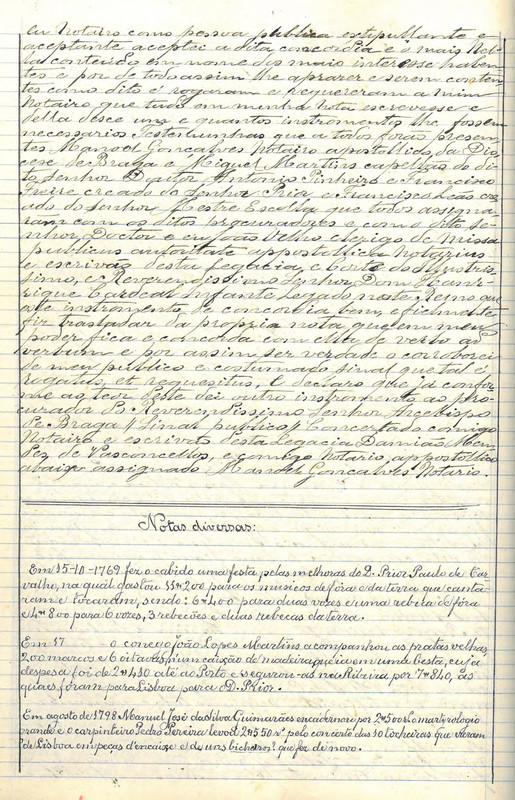 Eu Notairo como pessoa publica estipullante e
aceptante aceptei a dita concordia e o mais nel-
la conteudo em nome dos mais interesse haven-
tes e por de todo assim lhe aprazer e serem conten-
tes como dito é rogaram e requereram a mim
Notairo que tudo em minha nota escrevesse e
della desce um e quantos instromentos lhe fossem
necessarios. Testemunhas que a todo foras presen-
tes Manoel Gonçalves Notairo apostollico da Dio-
cese de Braga e Miguel Martins capellão do di-
to senhor Doutor Antonio Pinheiro e Francisco
Freire creado do senhor Prior e Francisco Leão cre-
ado do senhor Mestre Escolla que todos assigna-
ram com os ditos procuradores e com o dito Se-
nhor Doctor e eu João Velho clerigo de missa
publicus autoritate appostollica Notarius
e escrivão desta Legacia e corte do Illustris-
simo, e Reverendissimo Senhor Dom Hanr-
rique Cardeal Infante Legado neste Reyno que
este instromento de concordia bem, e fielmente
fiz trasladar da propria nota que em meu
poder fica e concorda com ella de verbo ad
verbum e por assim ser verdade o corroborei
de meu publico e costumado sinal que tal é
rogatus, et requesitus, E declaro que já confor-
me ao teor deste dei outro instromento ao pro-
curador do Reverendissimo Senhor Arcebispo
de Braga // Sinal publico // Concertado comigo
Notairo e escrivão desta Legacia Damião Men-
des de Vasconcellos, e comigo Notario appostollico
abaixo assignado Manoel Gonçalves Notario.
Notas diversas:
Em 15-10-1769 fez o cabido uma festa, pelas melhoras do D. Prior Paulo de Car-
valho, na qual gastou 11$200 para os musicos de fóra e da terra que canta-
ram e tocaram, sendo: 6$400 para duas vozes e uma rebeca de fóra
e 4$800 para 6 vozes, 3 rebecões e duas rebecas da terra.
Em 17 o conego João Lopes Martins acompanhou as pratas velhas,
200 marcos e 6 oitavas, n'um caixão de madeira que ia em uma besta, cuja
despesa foi de 2$430 até ao Porto e segurou-as na Ribeira por 7$840, as
quaes foram para Lisboa para o D. Prior.
Em agosto de 1798 Manuel José da Silva Guimarães encadernou por 2$500 o martyrologio
grande e o carpinteiro Pedro Pereira levou 2$550 rs pelo concerto das 10 tocheiras que vieram
de Lisboa em peças d'encaixe e de uns bicharos? que fez de novo.